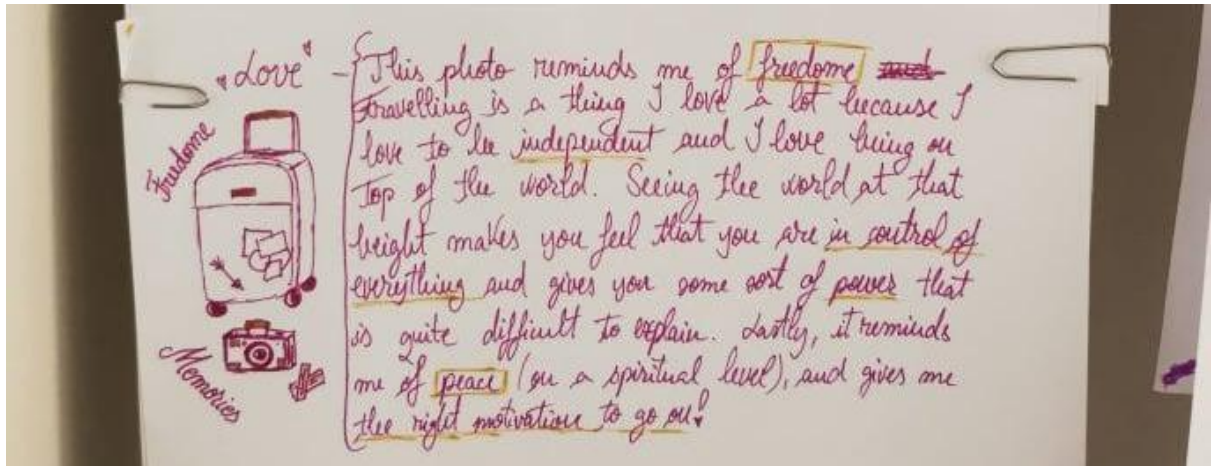 Love
Freedome
Memories
This photo reminds me of freedome
Travelling is a thing I love a lot because I
love to be independent and I love being on
Top of the world. Seeing the world at that
height makes you feel that you are in control of
everything and gives you some sort of power that
is quite difficult to explain. Lastly, it reminds
me of peace (on a spiritual level), and gives me
the right motivation to go on!